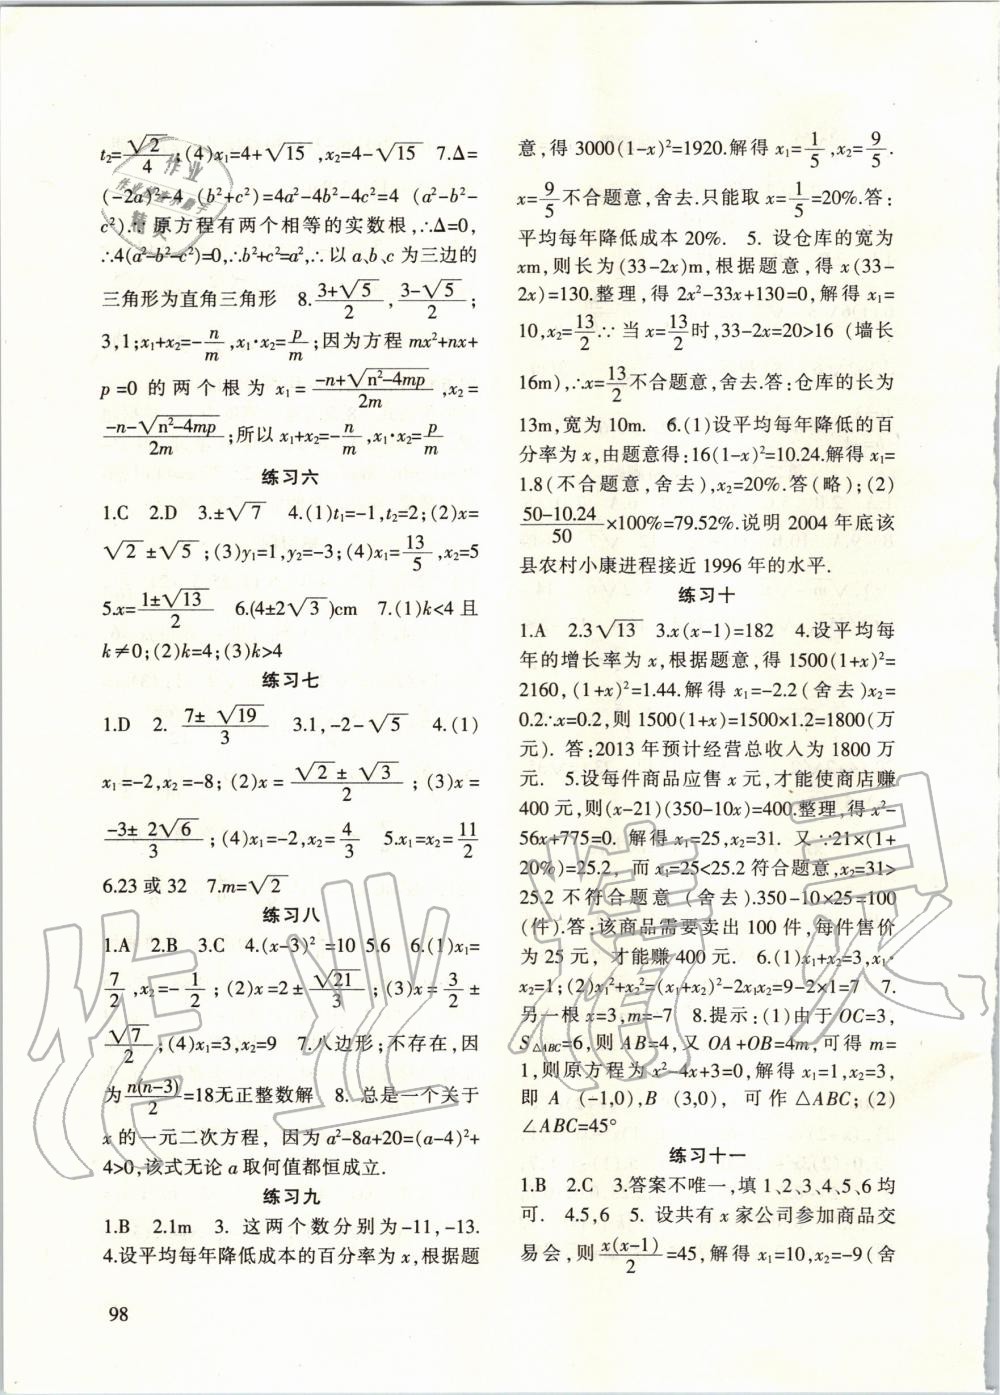 t₂=√2/4;(4)x₁=4+√15,x₂=4-√15 7.Δ=
(-2a)²-4 (b²+c²)=4a²-4b²-4c²=4 (a²-b²-
c²).∵原方程有两个相等的实数根,∴Δ=0,
∴4(a²-b²-c²)=0,∴b²+c²=a²,∴以a、b、c为三边的
三角形为直角三角形 8.(3+√5)/2,(3-√5)/2;
3,1;x₁+x₂=-n/m,x₁·x₂=p/m;因为方程mx²+nx+
p=0的两个根为x₁=(-n+√(n²-4mp))/2m,x₂=
(-n-√(n²-4mp))/2m;所以x₁+x₂=-n/m,x₁·x₂=p/m
练习六
1.C 2.D 3.±√7 4.(1)t₁=-1,t₂=2;(2)x=
√2±√5;(3)y₁=1,y₂=-3;(4)x₁=13/5,x₂=5
5.x=(1±√13)/2 6.(4±2√3)cm 7.(1)k<4且
k≠0;(2)k=4;(3)k>4
练习七
1.D 2.(7±√19)/3 3.1,-2-√5 4.(1)
x₁=-2,x₂=-8;(2)x=(√2±√3)/2;(3)x=
(-3±2√6)/3;(4)x₁=-2,x₂=4/3 5.x₁=x₂=11/2
6.23或32 7.m=√2
练习八
1.A 2.B 3.C 4.(x-3)²=10 5.6 6.(1)x₁=
7/2,x₂=-1/2;(2)x=2±√21/3;(3)x=3/2±
√7/2;(4)x₁=3,x₂=9 7.八边形;不存在,因
为n(n-3)/2=18无正整数解 8.总是一个关于
x的一元二次方程,因为a²-8a+20=(a-4)²+
4>0,该式无论a取何值都恒成立.
练习九
1.B 2.1m 3.这两个数分别为-11,-13.
4.设平均每年降低成本的百分率为x,根据题
意,得3000(1-x)²=1920.解得x₁=1/5,x₂=9/5.
x=9/5不合题意,舍去.只能取x=1/5=20%.答:
平均每年降低成本20%. 5.设仓库的宽为
xm,则长为(33-2x)m,根据题意,得x(33-
2x)=130.整理,得2x²-33x+130=0,解得x₁=
10,x₂=13/2∵当x=13/2时,33-2x=20>16(墙长
16m),∴x=13/2不合题意,舍去.答:仓库的长为
13m,宽为10m. 6.(1)设平均每年降低的百
分率为x,由题意得:16(1-x)²=10.24.解得x₁=
1.8(不合题意,舍去),x₂=20%.答(略);(2)
(50-10.24)/50×100%=79.52%.说明2004年底该
县农村小康进程接近1996年的水平.
练习十
1.A 2.3√13 3.x(x-1)=182 4.设平均每
年的增长率为x,根据题意,得1500(1+x)²=
2160,(1+x)²=1.44.解得x₁=-2.2(舍去)x₂=
0.2∴x=0.2,则1500(1+x)=1500×1.2=1800(万
元).答:2013年预计经营总收入为1800万
元. 5.设每件商品应售x元,才能使商店赚
400元,则(x-21)(350-10x)=400.整理,得x²-
56x+775=0.解得x₁=25,x₂=31.又∵21×(1+
20%)=25.2,而x₁=25<25.2符合题意,x₂=31>
25.2不符合题意(舍去).350-10×25=100
(件).答:该商品需要卖出100件,每件售价
为25元,才能赚400元. 6.(1)x₁+x₂=3,x₁·
x₂=1;(2)x₁²+x₂²=(x₁+x₂)²-2x₁x₂=9-2×1=7 7.
另一根x=3,m=-7 8.提示:(1)由于OC=3,
S△ABC=6,则AB=4,又OA+OB=4m,可得m=
1,则原方程为x²-4x+3=0,解得x₁=1,x₂=3,
即A(-1,0),B(3,0),可作△ABC;(2)
∠ABC=45°
练习十一
1.B 2.C 3.答案不唯一,填1、2、3、4、5、6均
可. 4.5,6 5.设共有x家公司参加商品交
易会,则x(x-1)/2=45,解得x₁=10,x₂=-9(舍
98
作业精灵